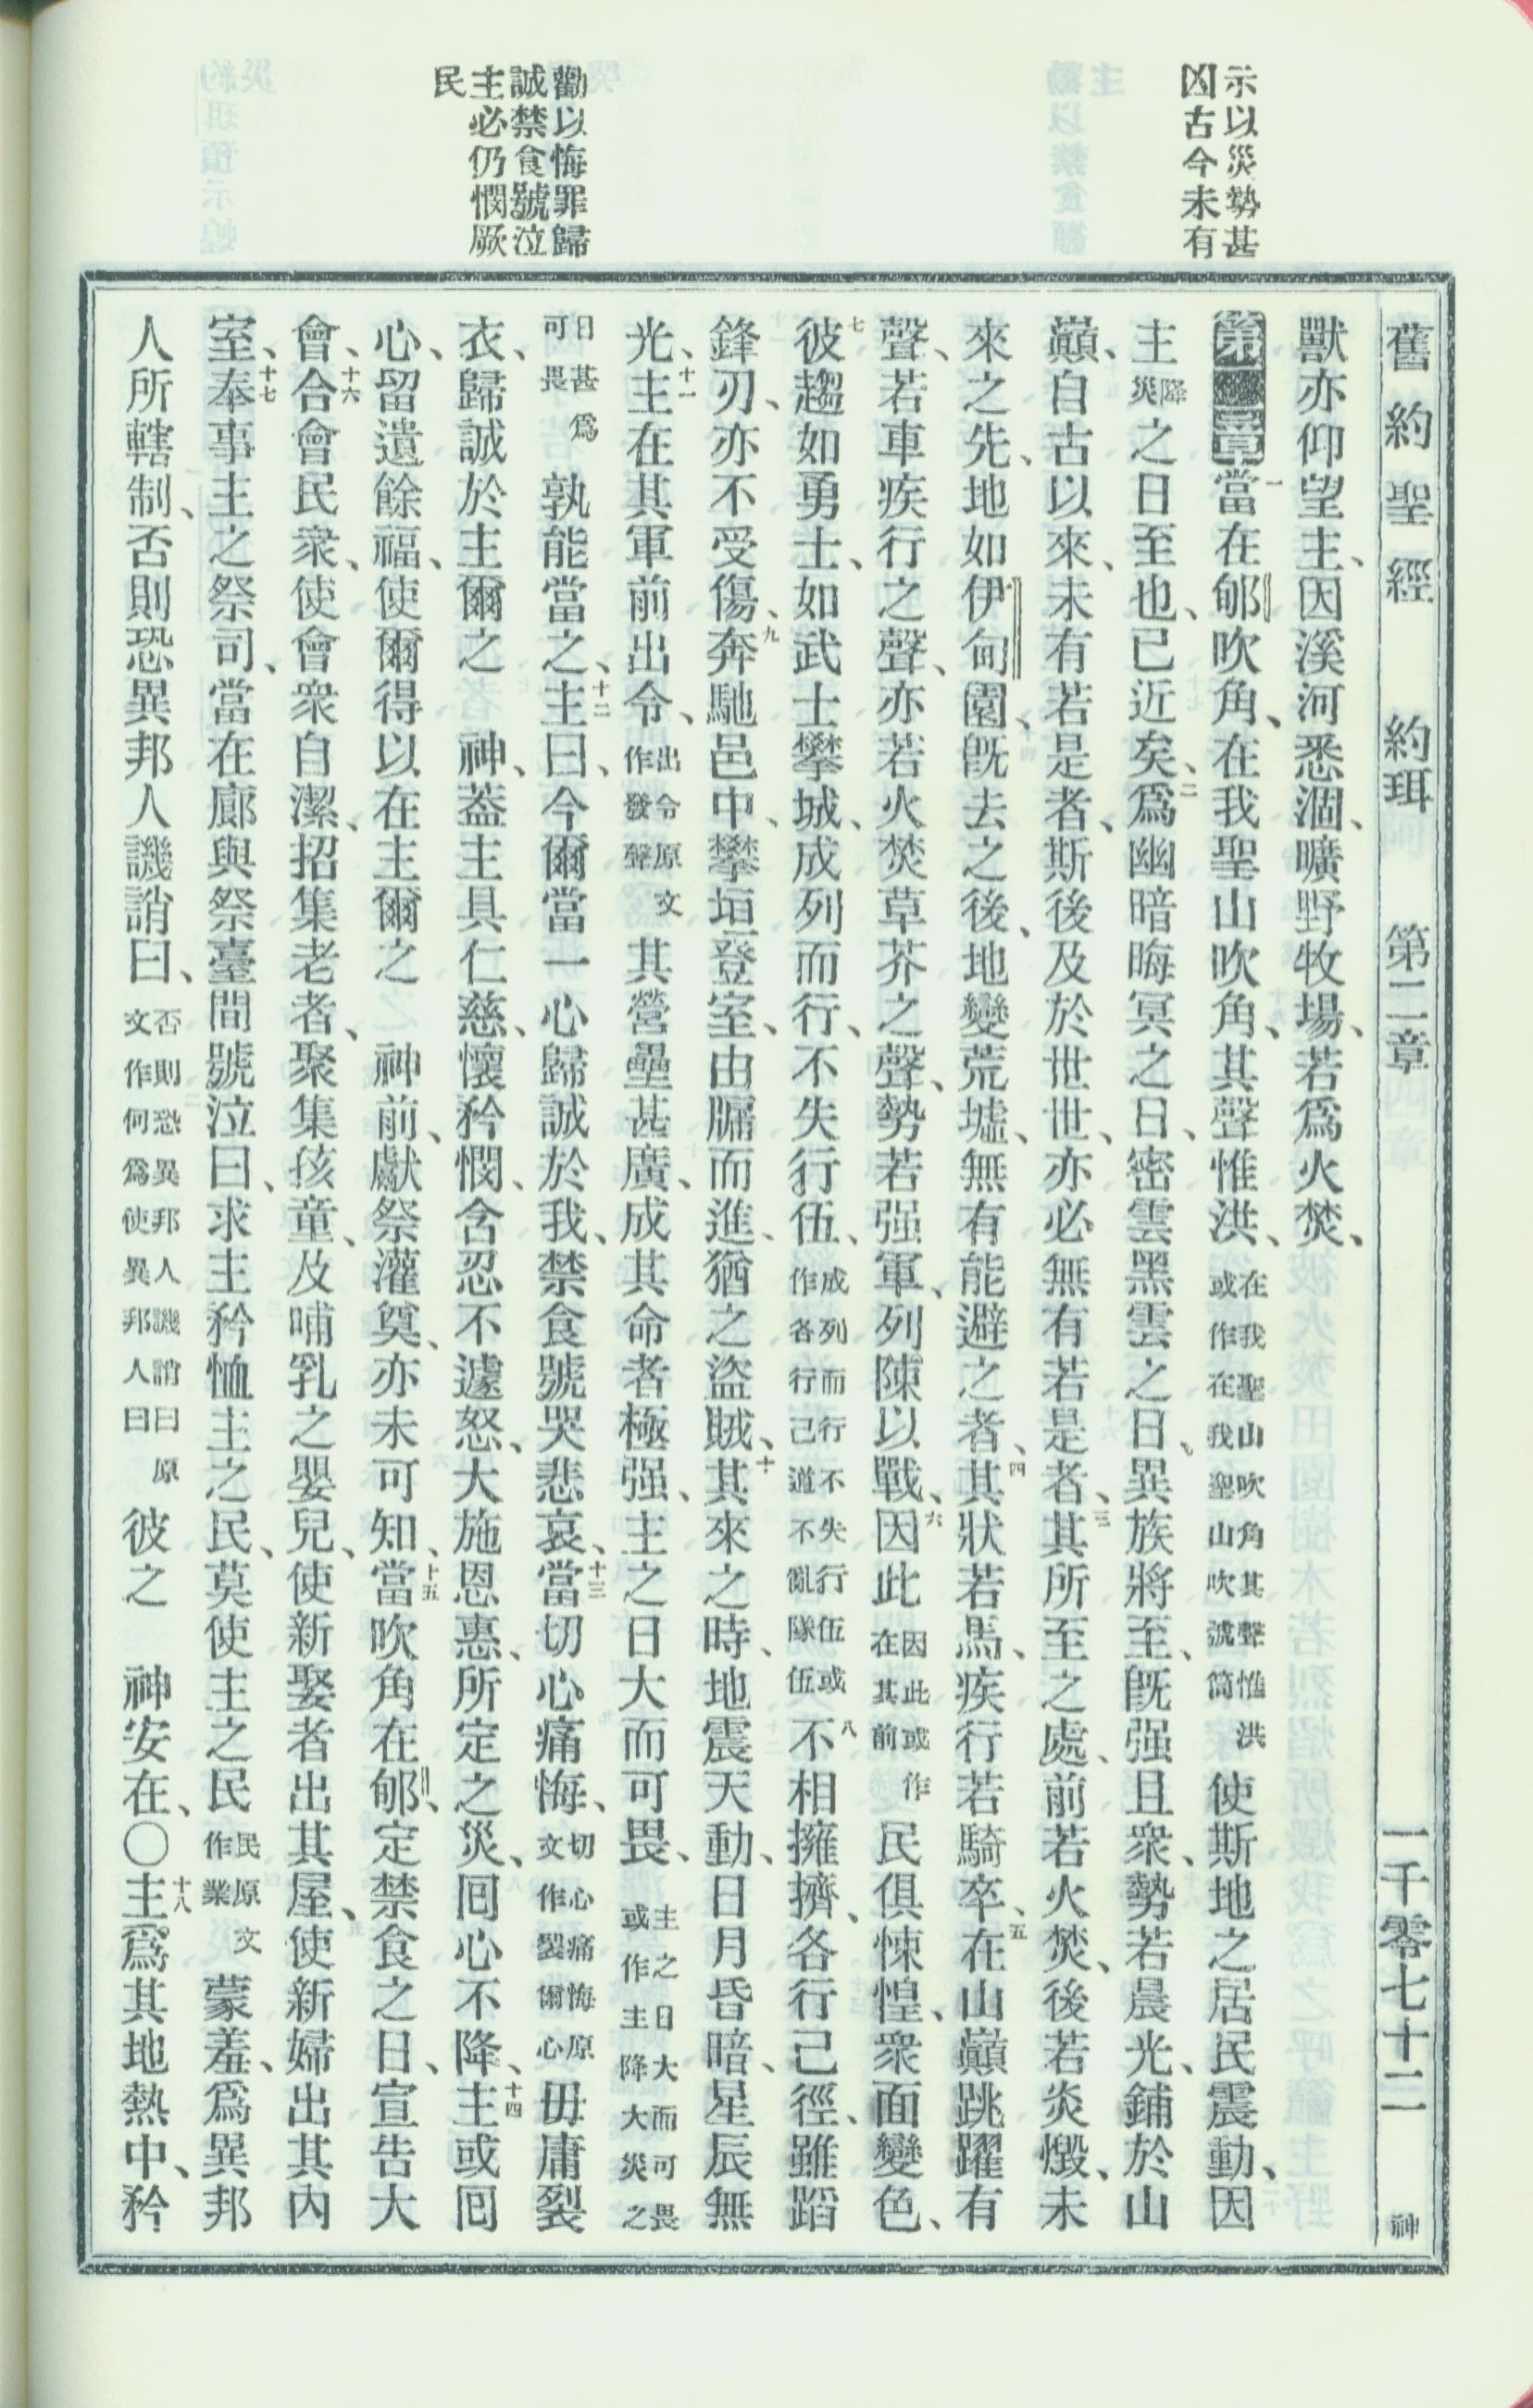 舊約聖經 約珥 第二章 一千零七十二 神
示以災勢甚
凶古今未有
勸以悔罪歸
誠禁食號泣
主必仍憫厥
民
獸亦仰望主、因溪河悉涸、曠野牧場、若爲火焚、
第二章 一當在郇吹角、在我聖山吹角、其聲惟洪、在我聖山吹角其聲惟洪或作在我聖山吹號筒使斯地之居民震動、因
主降災之日至也、已近矣、二爲幽暗晦冥之日、密雲黑雲之日、異族將至、旣强且衆、勢若晨光、鋪於山
巔、自古以來、未有若是者、斯後及於世世、亦必無有若是者、三其所至之處、前若火焚、後若炎燬、未
來之先、地如伊甸園、旣去之後、地變荒墟、無有能避之者、四其狀若馬、疾行若騎卒、五在山巔跳躍有
聲、若車疾行之聲、亦若火焚草芥之聲、勢若强軍、列陳以戰、六因此因此或作在其前民俱悚惶、衆面變色、
七彼趨如勇士、如武士攀城、成列而行、不失行伍、成列而行不失行伍或作各行己道不亂隊伍八不相擁擠、各行己徑、雖蹈
鋒刃、亦不受傷、九奔馳邑中、攀垣登室、由牖而進、猶之盜賊、十其來之時、地震天動、日月昏暗、星辰無
光、十一主在其軍前出令、出令原文作發聲其營壘甚廣、成其命者極强、主之日大而可畏、主之日大而可畏或作主降大災之
日甚爲可畏孰能當之、十二主曰、今爾當一心歸誠於我、禁食號哭悲哀、十三當切心痛悔、切心痛悔原文作裂爾心毋庸裂
衣、歸誠於主爾之 神、蓋主具仁慈、懷矜憫、含忍不遽怒、大施恩惠、所定之災、囘心不降、十四主或囘
心、留遺餘福、使爾得以在主爾之 神前、獻祭灌奠、亦未可知、十五當吹角在郇、定禁食之日、宣告大
會、十六合會民衆、使會衆自潔、招集老者、聚集孩童、及哺乳之嬰兒、使新娶者出其屋、使新婦出其內
室、十七奉事主之祭司、當在廊與祭臺間號泣曰、求主矜恤主之民、莫使主之民民原文作業蒙羞、爲異邦
人所轄制、否則恐異邦人譏誚曰、否則恐異邦人譏誚曰原文作何爲使異邦人曰彼之 神安在、〇十八主爲其地熱中、矜